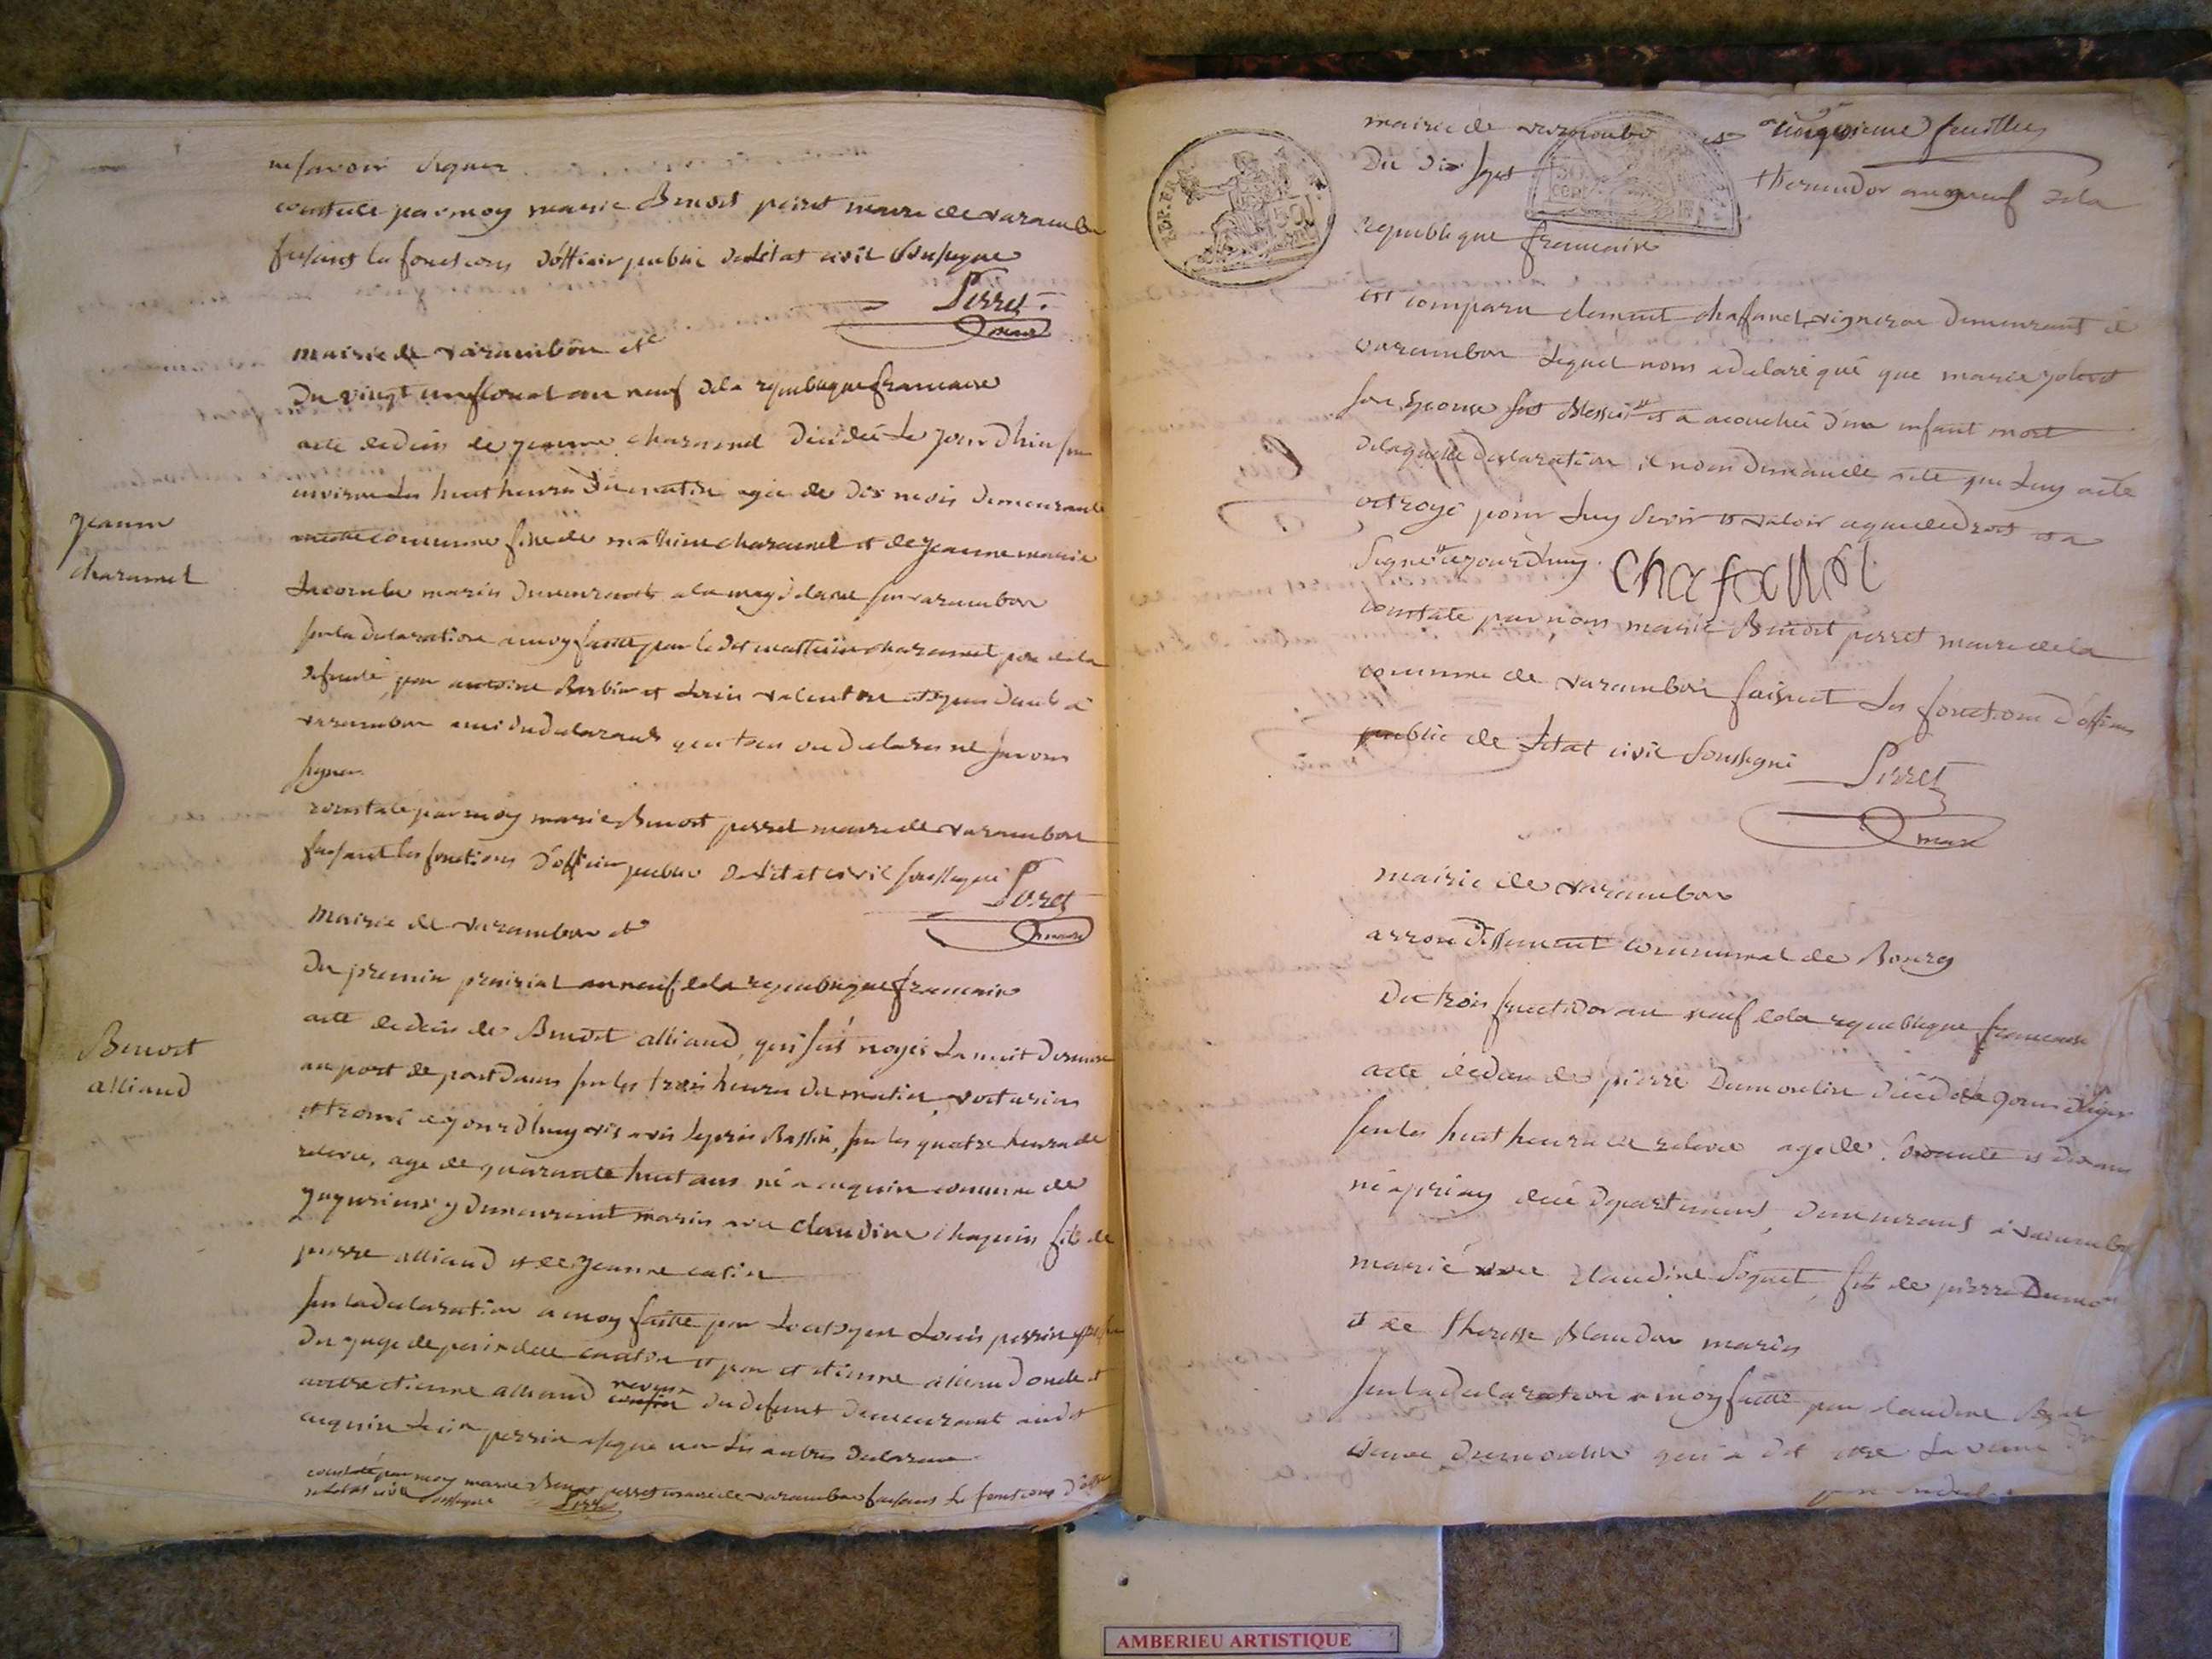 ne savoir signer
constate par moy marie Benoit perret maire de varambon
faisant les fonctions d'officier public de l'etat civil soussigne
Perret
maire
mairie de varambon etc
Du vingt un floreal an neuf de la republique francaise
acte de deces de jeanne charamel décédée le jour d'hier sur
environ les huit heures du matin agée de dix mois demeurante
commune fille de mathieu charamel et de jeanne marie
Lacombe mariés demeurants a la magdelaine sur varambon
sur la declaration a moy faitte par le dit matthieu charamel pere de la
defunte, par antoine Barbier et valentin demeurants à
varambon amis du declarant qui tous ont declarés ne savoir
signer
constaté par moy marie Benoit perret maire de varambon
faisant les fonctions d'officier public de l'etat civil soussigné
Perret
maire
Jeanne
charamel
mairie de varambon etc
Du premier prairial an neuf de la republique francaise
acte de deces de Benoit alliaud, qui s'est noyé la nuit derniere
au port de pont dains sur les trois heures du matin, voiturier
et trouvé ce jourd'huy vis a vis, sur les quatre heures de
relevée, agé de quarante huit ans né a cuquin commune de
jujurieux y demeurant mariés avec claudine chapuis fils de
pierre alliaud et de jeanne catin
sur la declaration a moy faitte par le citoyen Louis perrin
du juge de paix et par etienne alliaud oncle et
autre etienne alliaud neveux du defunt demeurant audit
cuquin le cin perrin a signe non les autres declarans
constaté par moy marie Benoit perret maire de varambon faisant les fonctions d'officier
de l'etat civil soussigne Perret
Benoit
alliaud
mairie de varambon etc cinquieme feuillet
REP. FRA
50
cent
50
Du dix sept thermidor an neuf de la
republique francaise
est comparu clement chafanel vigneron demeurant à
varambon lequel nous a declaré que que marie
son epouse s'est blessée et a acouchée d'un enfant mort
de laquelle declaration il nous demande acte que luy acte
octroyé pour luy servir et valoir a que de droit et a
signé ce jourd'huy. chafanel
constate par nous marie Benoit perret maire de la
commune de varambon faisant les fonctions d'officier
public de l'etat civil soussigné Perret
maire
mairie de varambon
arrondissement communal de Bourg
Du trois fructidor an neuf de la republique francaise
acte de deces de pierre Dumoulin décédé le jour d'hyer
sur les huit heures de relevée agé de soixante et dix ans
né a priay dud departement, demeurant à varambon
marié avec claudine, fils de pierre Dumoin
et de Theresse Blandon mariés
sur la declaration a moy faitte par claudine
veuve Dumoulin qui a dit etre la veuve du
AMBERIEU ARTISTIQUE